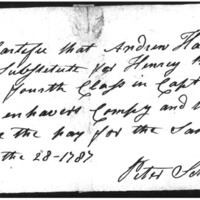 Certifie that Andrew Ha
Substitute for Henrey
fourth Class in Capt
enhavers Compy and
the pay for the Sam
the 28-1787
Peter Sch